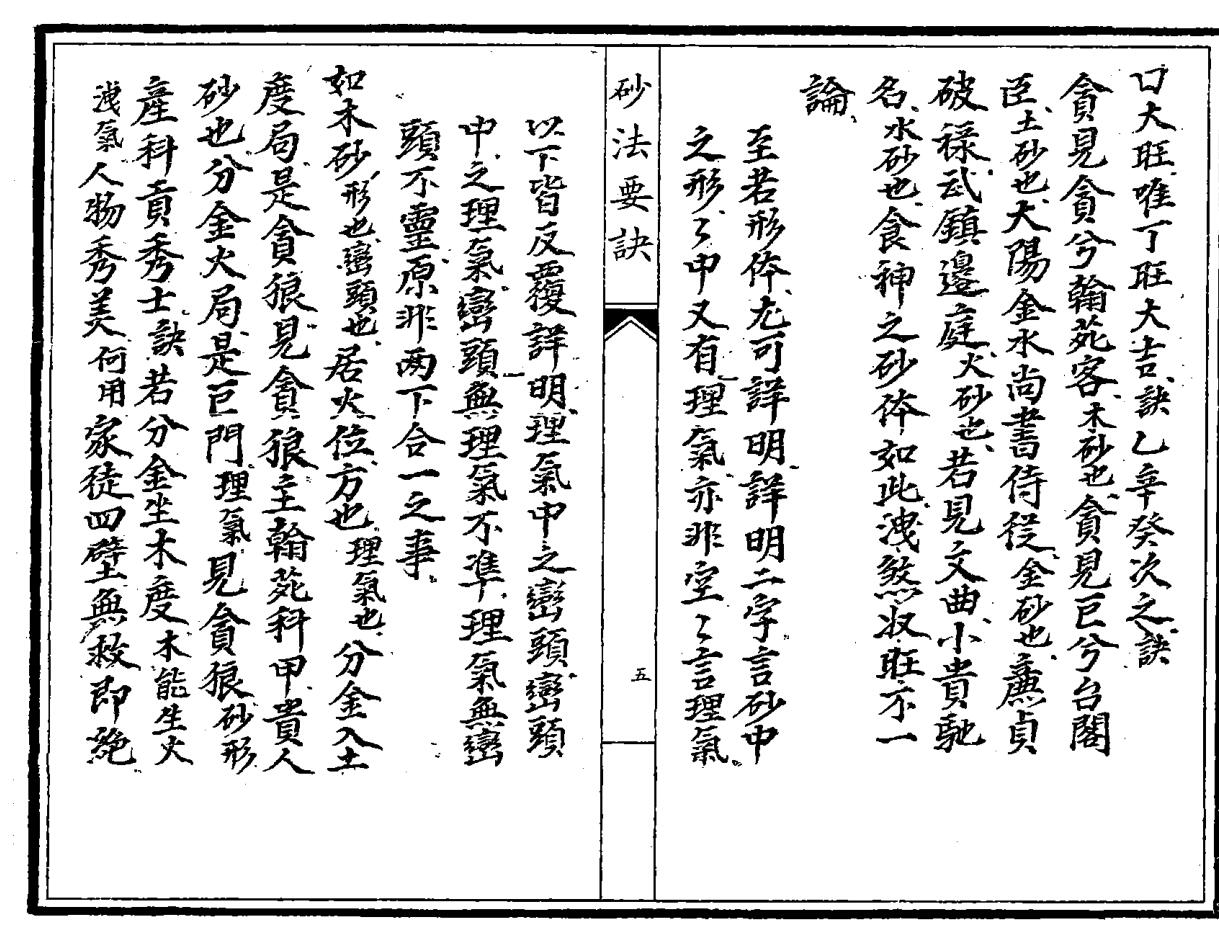 口大旺唯丁旺大吉訣乙辛癸次之訣
貪見貪兮翰苑客木砂也貪見巨兮台閣
臣土砂也太陽金水尚書侍從金砂也廉貞
破祿武鎮邊庭火砂也若見文曲小貴馳
名水砂也食神之砂体如此洩煞收旺不一
論
至若形体尤可詳明詳明二字言砂中
之形々中又有理氣亦非空々言理氣
砂法要訣
五
以下皆反覆詳明理氣中之巒頭巒頭
中之理氣巒頭無理氣不準理氣無巒
頭不靈原非両下合一之事
如木砂形也巒頭也居火位方也理氣也分金入土
度局是貪狼見貪狼主翰苑科甲貴人
砂也分金火局是巨門理氣見貪狼砂形
產科貢秀士訣若分金坐木度木能生火
洩氣人物秀美何用家徒四壁無救即絕